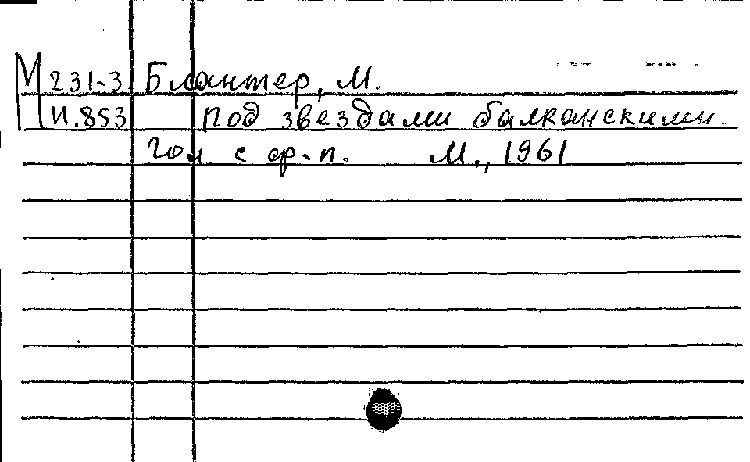 М 231-3 Блантер, М.
И.853 Под звездами балканскими.
Гол с ф-п. М., 1961